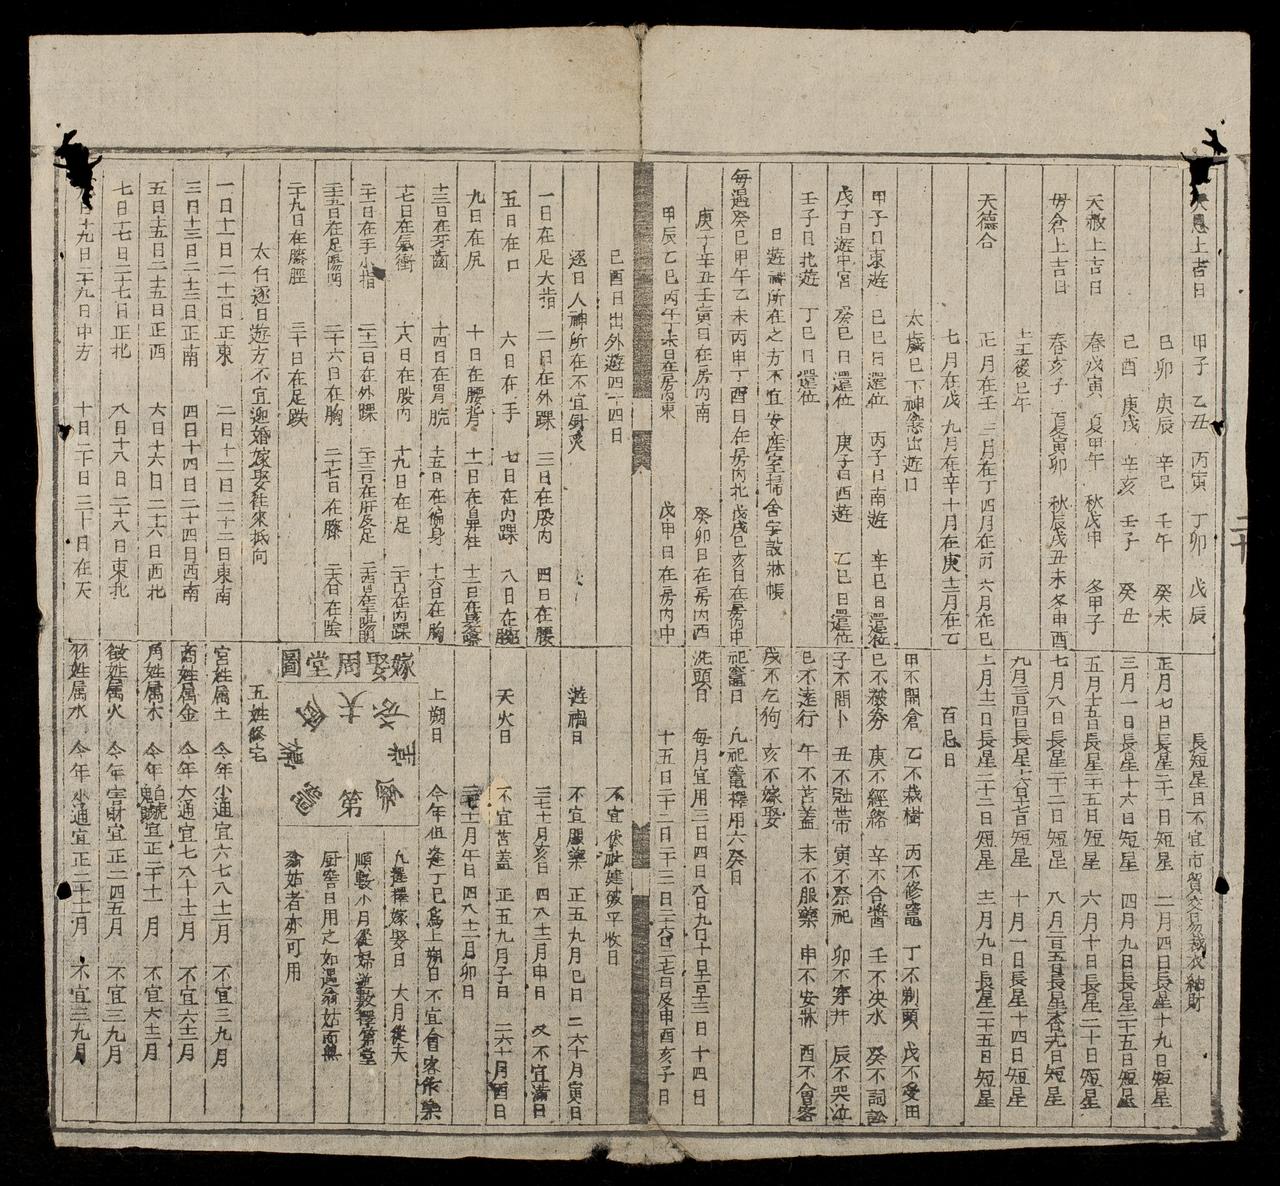 天恩上吉日 甲子 乙丑 丙寅 丁卯 戊辰
己卯 庚辰 辛巳 壬午 癸未
己酉 庚戌 辛亥 壬子 癸丑
天赦上吉日 春戊寅 夏甲午 秋戊申 冬甲子
母倉上吉日 春亥子 夏寅卯 秋辰戌丑未 冬申酉
土王後巳午
天德合 正月在壬 三月在丁 四月在丙 六月在巳
七月在戊 九月在辛 十月在庚 十二月在乙
太歲已下神煞出遊日
甲子日東遊 己巳日還位 丙子日南遊 辛巳日還位
戊子日遊中宮 癸巳日還位 庚子日西遊 乙巳日還位
壬子日北遊 丁巳日還位
日遊神所在之方不宜安產室掃舍宇設牀帳
每遇癸巳甲午乙未丙申丁酉日在房內北戊戌己亥日在房內中
庚子辛丑壬寅日在房內南 癸卯日在房內西
甲辰乙巳丙午丁未日在房內東 戊申日在房內中
長短星日不宜市貿交易裁衣納財
正月七日長星二十一日短星 二月四日長星十九日短星
三月一日長星十六日短星 四月九日長星二十五日短星
五月十五日長星二十五日短星 六月十日長星二十日短星
七月八日長星二十二日短星 八月
九月三四日長星十六十七日短星 十月一日長星十四日短星
十一月十二日長星二十二日短星 十二月九日長星二十五日短星
百忌日
甲不開倉 乙不栽樹 丙不修竈 丁不剃頭 戊不受田
己不破券 庚不經絡 辛不合醬 壬不決水 癸不詞訟
子不問卜 丑不冠帶 寅不祭祀 卯不穿井 辰不哭泣
巳不遠行 午不苫蓋 未不服藥 申不安牀 酉不會客
戌不乞狗 亥不嫁娶
祀竈日 凡祀竈擇用六癸日
洗頭日 每月宜用三日四日八日九日十日十一日十三日十四日
十五日二十二日二十三日二十六日二十七日及申酉亥子日
己酉日出外遊四十四日
逐日人神所在不宜針灸
一日在足大指 二日在外踝 三日在股內 四日在腰
五日在口 六日在手 七日在內踝 八日在腕
九日在尻 十日在腰背 十一日在鼻柱 十二日在髮際
十三日在牙齒 十四日在胃脘 十五日在徧身 十六日在胸
十七日在氣衝 十八日在股內 十九日在足 二十日在內踝
二十一日在手小指 二十二日在外踝 二十三日在肝及足 二十四日在手陽明
二十五日在足陽明 二十六日在胸 二十七日在膝 二十八日在陰
二十九日在膝脛 三十日在足跌
太白逐日遊方不宜迎婚嫁娶往來抵向
一日十一日二十一日正東 二日十二日二十二日東南
三日十三日二十三日正南 四日十四日二十四日西南
五日十五日二十五日正西 六日十六日二十六日西北
七日十七日二十七日正北 八日十八日二十八日東北
日十九日二十九日中方 十日二十日三十日在天
不宜 建破平收日
遊禍日 不宜服藥 正五九月巳日 二六十月寅日
三七十一月亥日 四八十二月申日 又不宜滿日
天火日 不宜苫蓋 正五九月子日 二六十月酉日
三七十一月午日 四八十二月卯日
上朔日 今年但逢丁巳為上朔日不宜會客作樂
嫁娶周堂圖
夫
第
凡選擇嫁娶日 大月從夫
順數小月從婦逆數擇第堂
厨竈日用之如遇翁姑而無
翁姑者亦可用
五姓修宅
宮姓屬土 今年小通宜六七八十二月 不宜三九月
商姓屬金 今年大通宜七八十十一月 不宜六十二月
角姓屬木 今年 宜正二十十一月 不宜六十二月
徵姓屬火 今年 宜正二四五月 不宜三九月
羽姓屬水 今年小通宜正二十十一月 不宜三九月